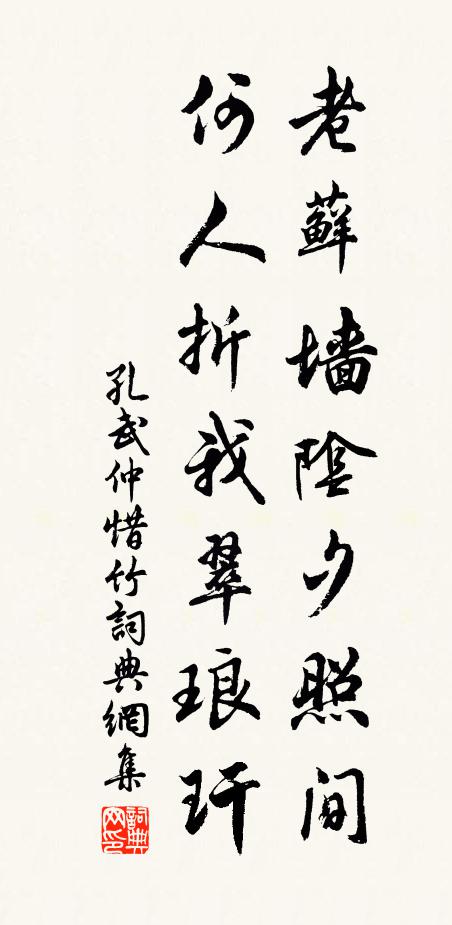 老蘚墙陰夕照间
何人折我翠琅玕
孔武仲惜竹詞典網集
詞典网印